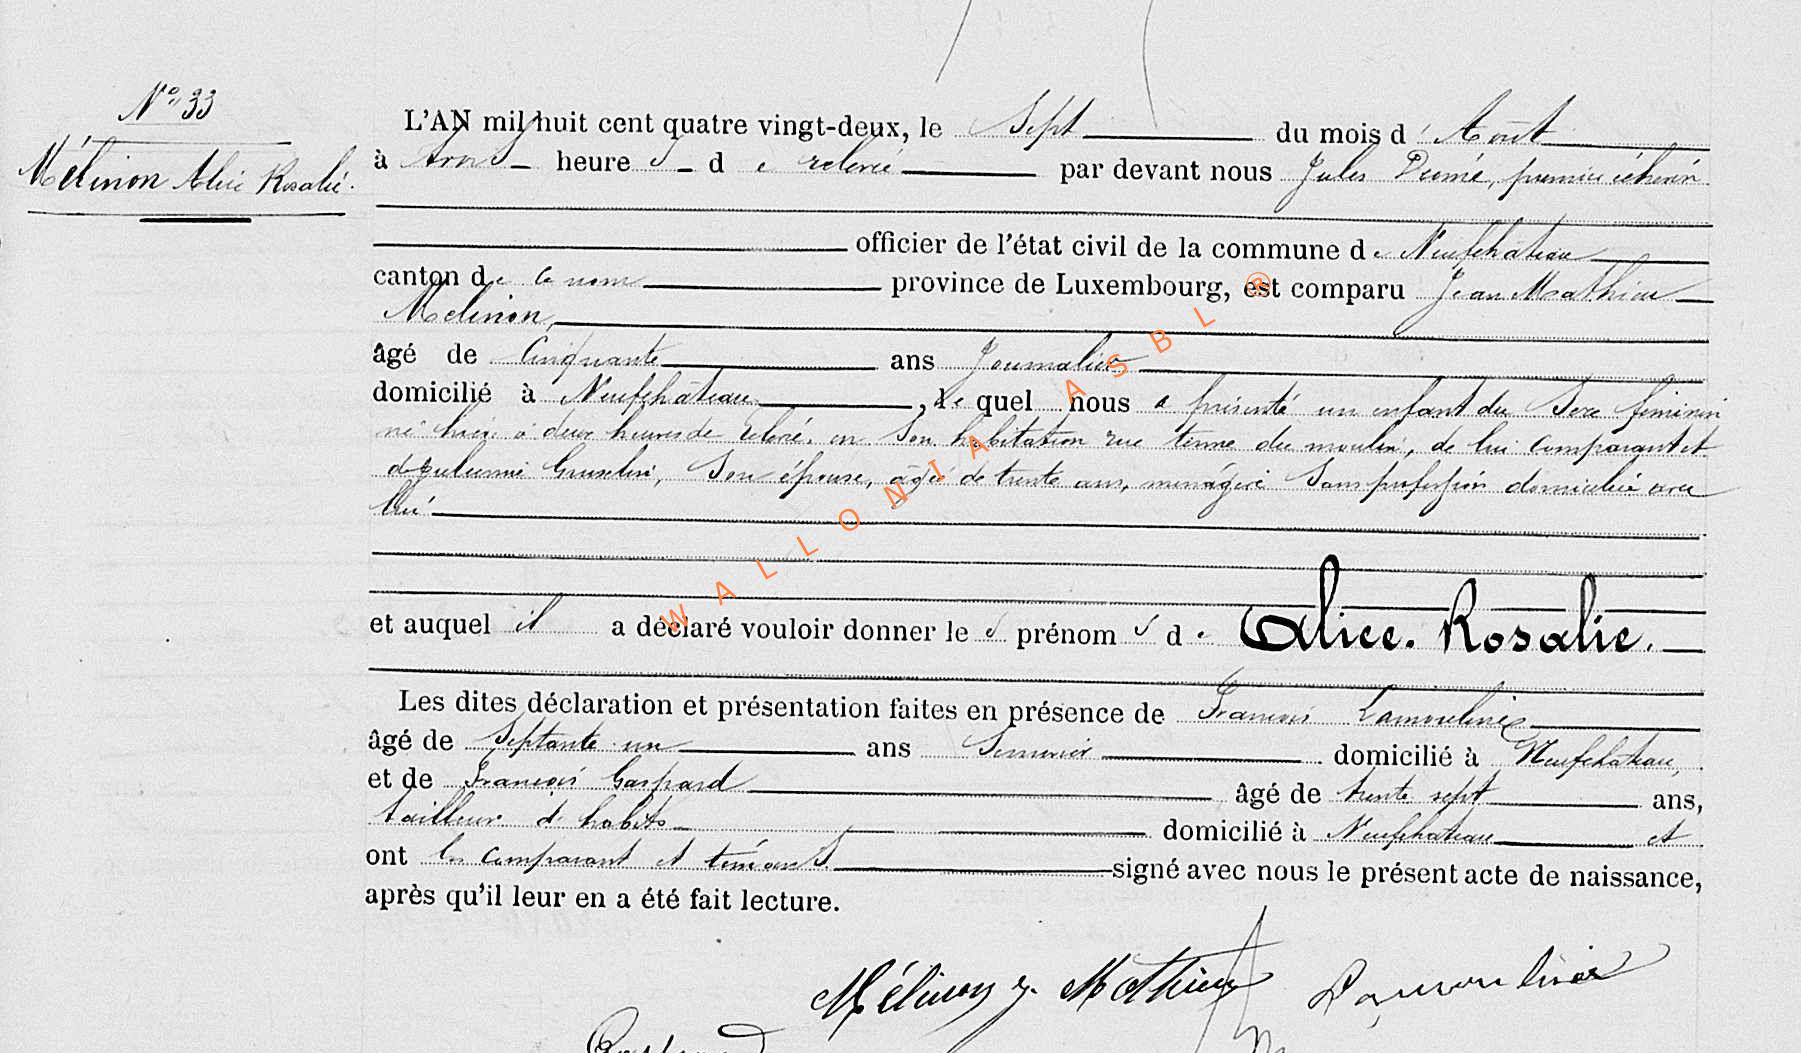 N° 33
Mélinon Alice Rosalie.
L'AN mil huit cent quatre vingt-deux, le Sept du mois d'Août
à trois heures de relevée par devant nous Jules premier échevin
officier de l'état civil de la commune de Neufchâteau
canton de ce nom province de Luxembourg, est comparu Jean Mathieu
Melinon,
âgé de Cinquante ans Journalier
domicilié à Neufchâteau, lequel nous a présenté un enfant du Sexe féminin
né hier à deux heures de relevée, en Son habitation rue terme du moulin, de lui comparant et
de Son épouse, âgée de trente ans, ménagère Sans profession domiciliée avec
lui
et auquel il a déclaré vouloir donner les prénoms de Alice. Rosalie.
Les dites déclaration et présentation faites en présence de François Lamouline
âgé de Septante un ans domicilié à Neufchateau,
et de François Gaspard âgé de trente sept ans,
tailleur d'habits domicilié à Neufchateau et
ont les comparant et témoins signé avec nous le présent acte de naissance,
après qu'il leur en a été fait lecture.
Mélinon J. Mathieu
WALLONIA ASBL ®